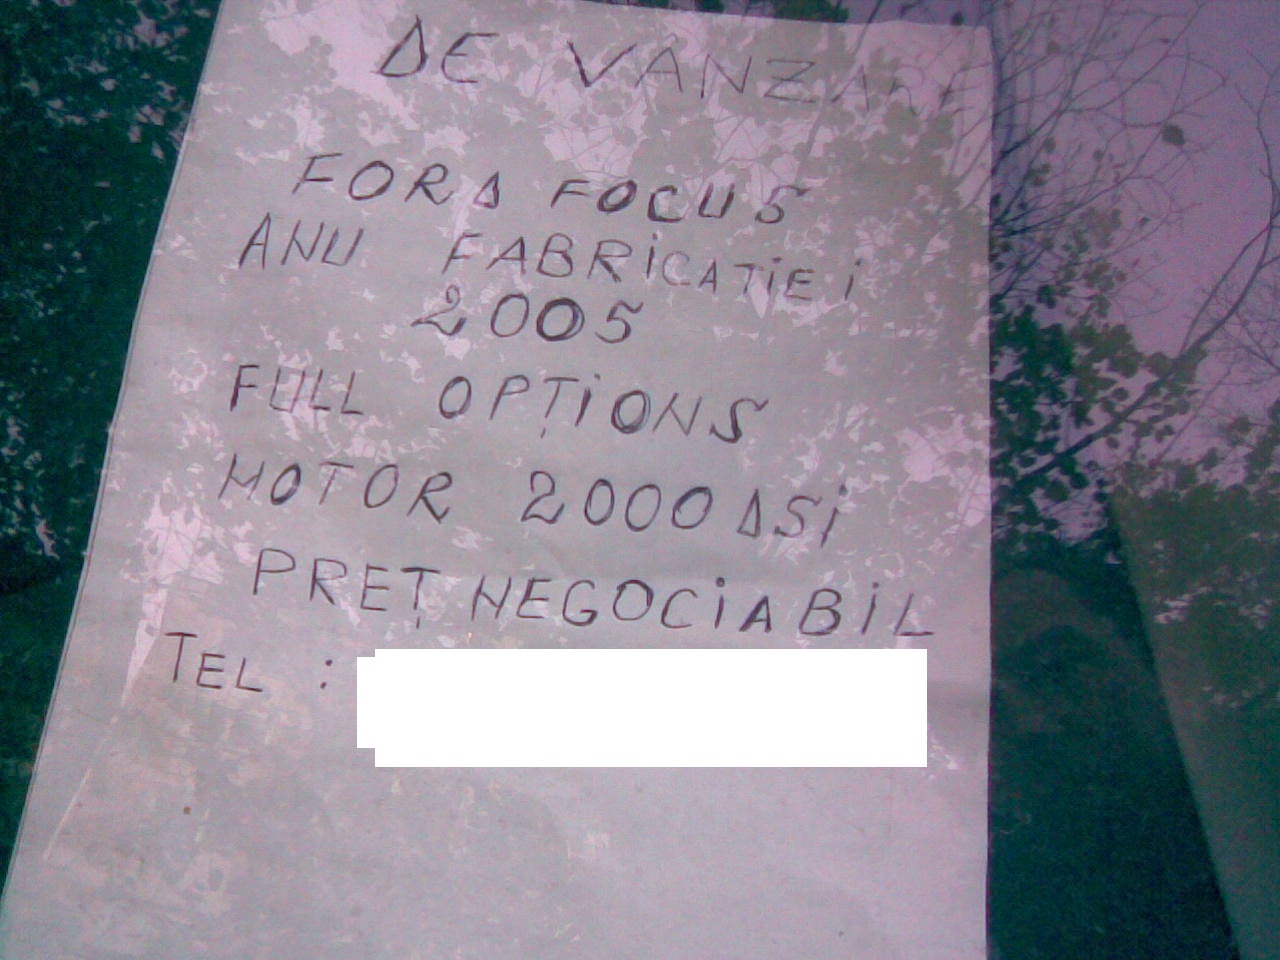 DE VANZARE
FORD FOCUS
ANU FABRICATIEI
2005
FULL OPȚIONS
MOTOR 2000 DSI
PREȚ NEGOCIABIL
TEL :